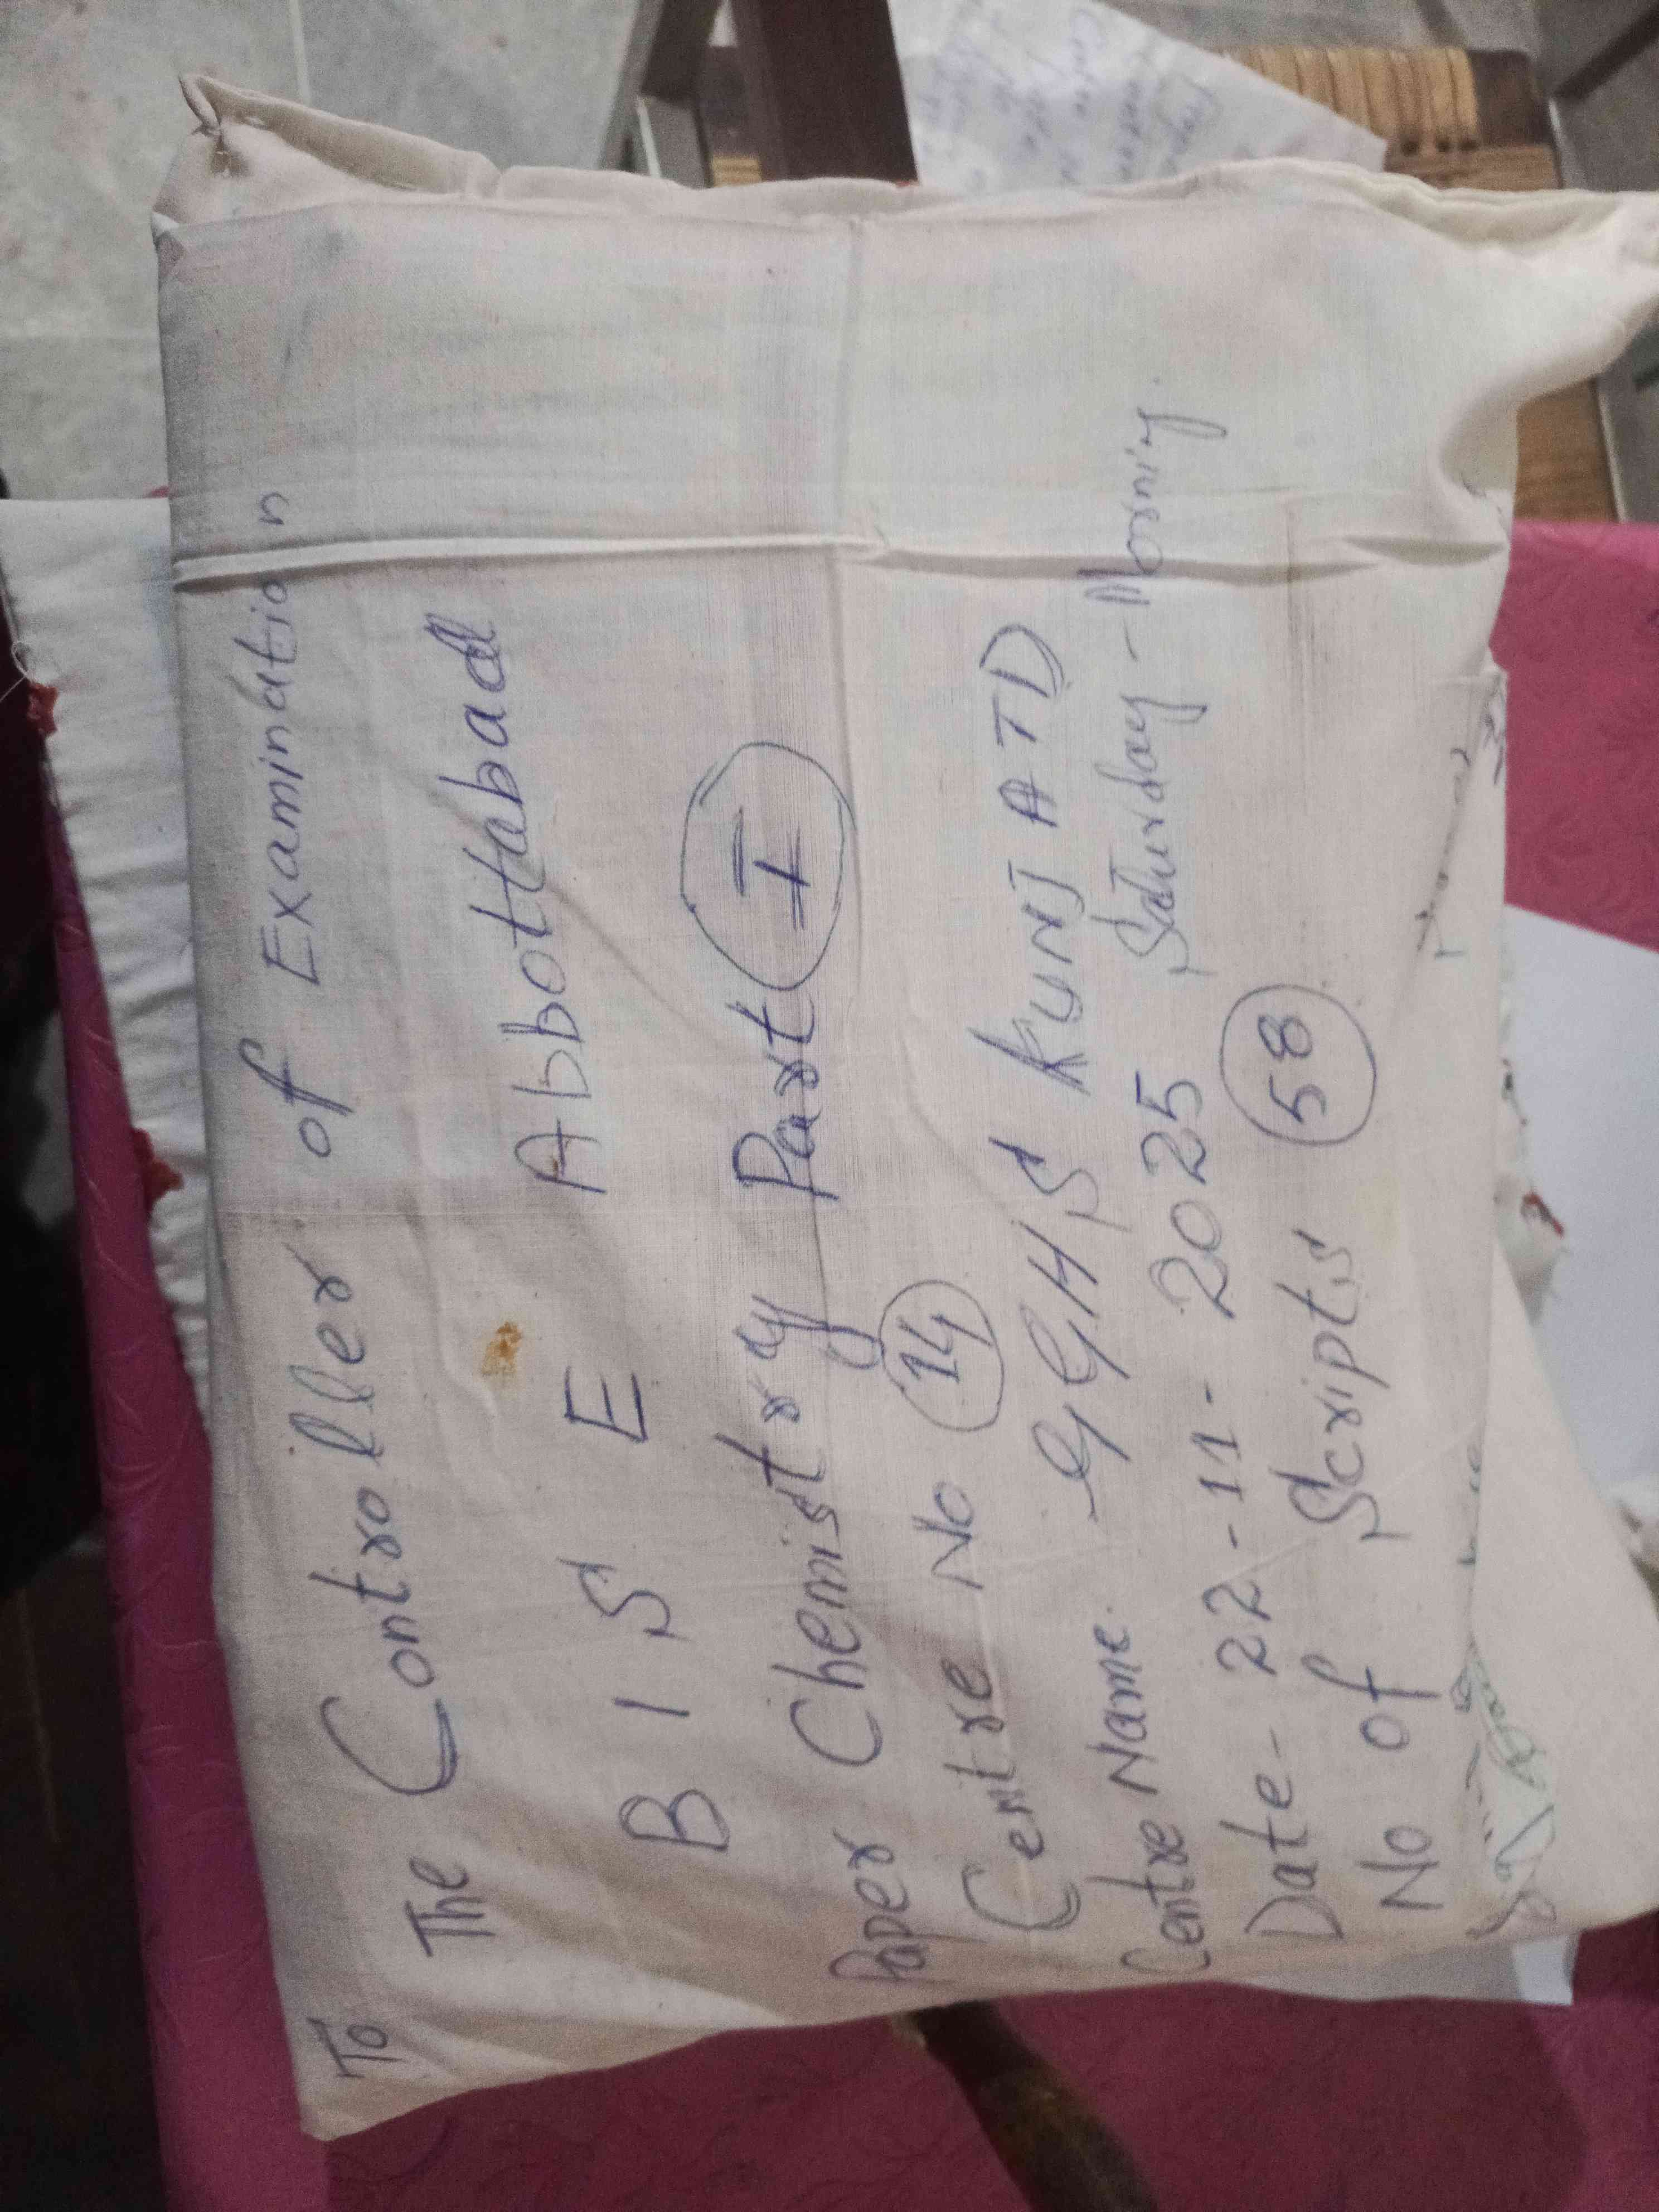 To
The Controller of Examination
B I S E Abbottabad
Paper Chemistry Part I
Centre No 14
Centre Name. GGHS KUNJ ATD
Date- 22-11-2025 Saturday - Morning.
No of Scripts 58